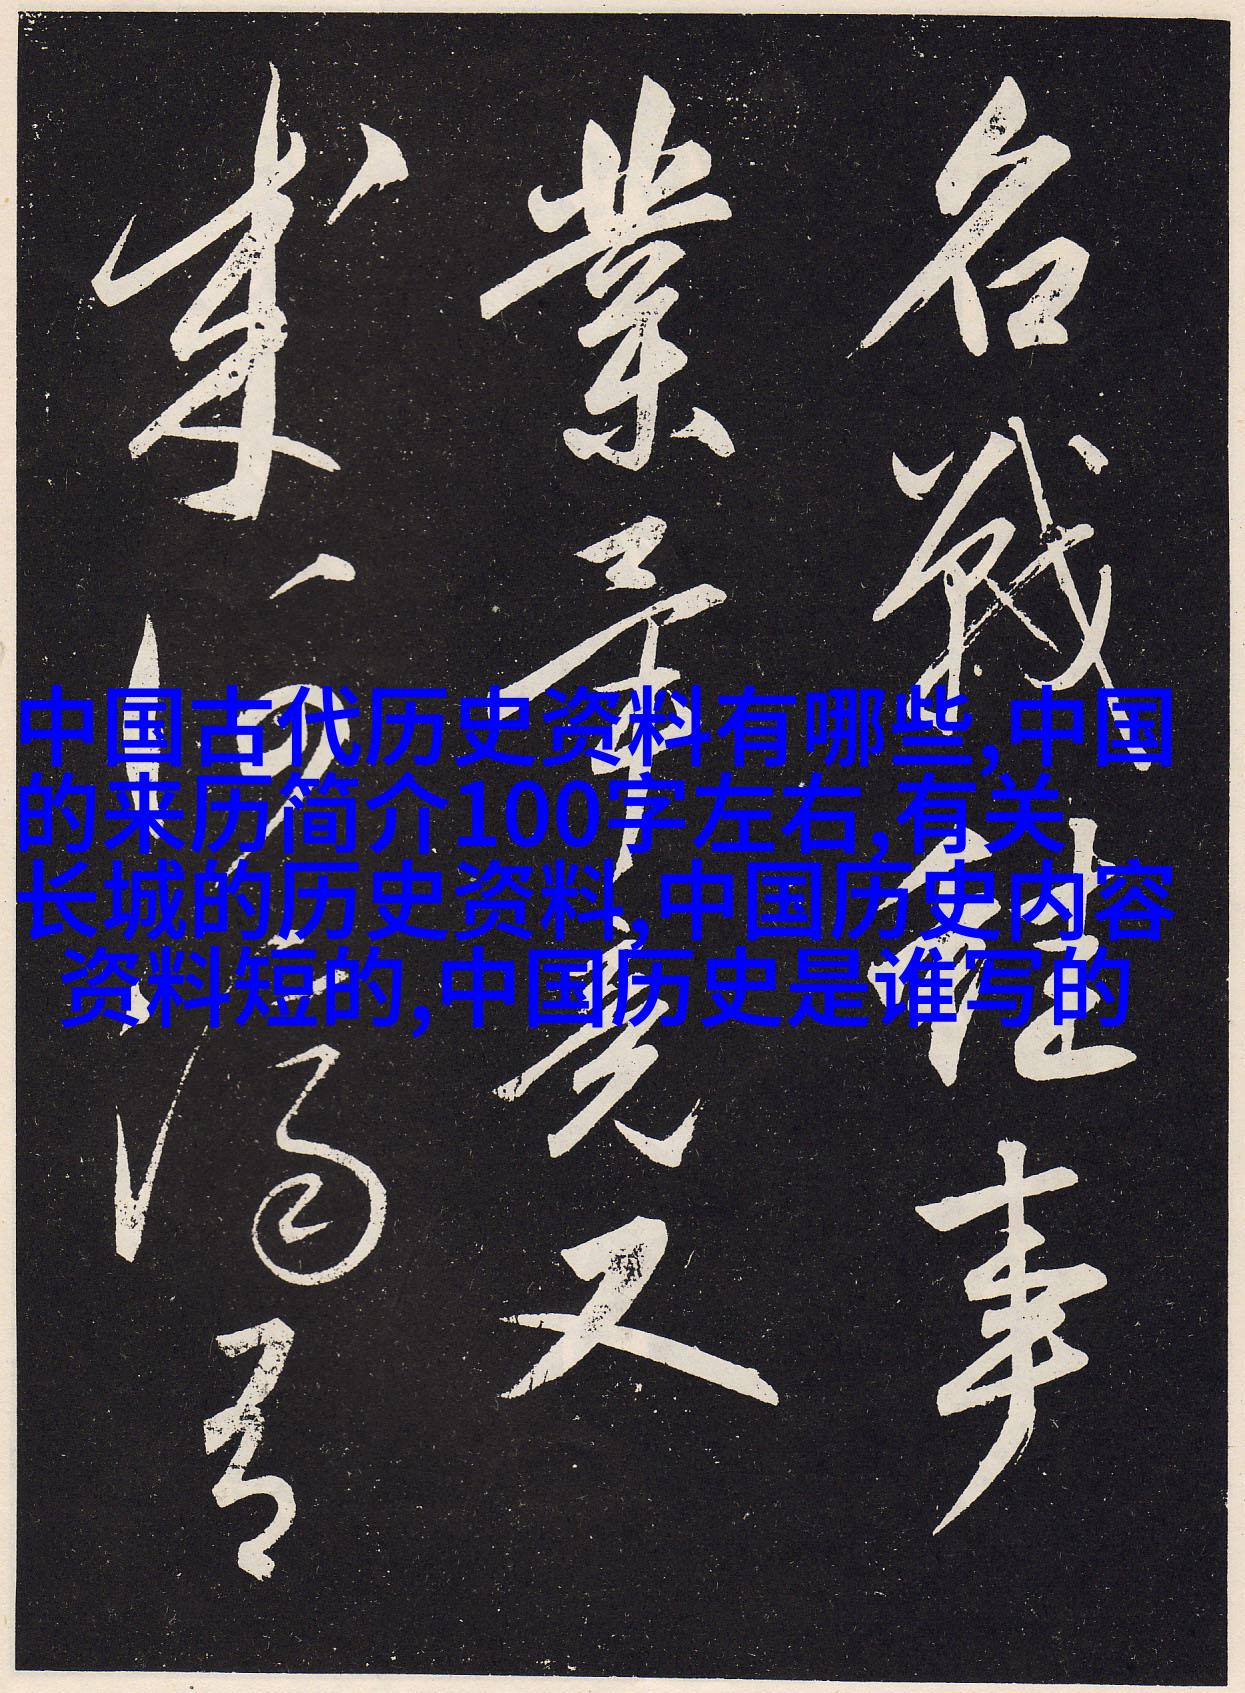 中国古代历史资料有哪些,中国
的来历简介100字左右,有关
长城的历史资料,中国历史内容
资料短的,中国历史是谁写的
名戰雖事
業竟又